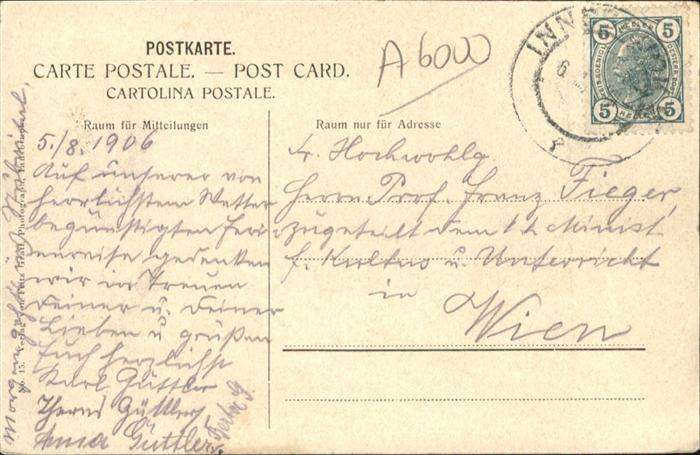 POSTKARTE.
CARTE POSTALE. — POST CARD.
CARTOLINA POSTALE.
A 6000
INNS
5
5
5
5
Raum für Mitteilungen
5./8. 1906
Auf unserer von
herrlichstem Wetter
begünstigten Feri-
enreise gedenken
wir in Treuen
Deiner u. Deiner
Lieben u grüßen
Euch herzlichst
Karl Güttler
Güttler
Anna Güttler
Morgen geht's
Raum nur für Adresse
Sr. Hochwohlg
Herrn Prof. Franz Fieger,
zugeteilt dem k k Minist
f. Kultus u. Unterricht
in
Wien